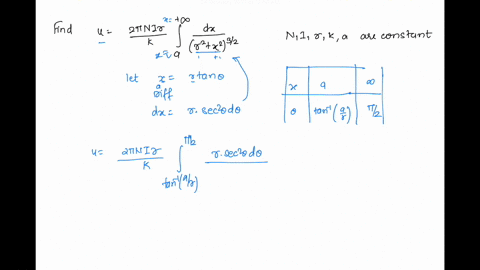 Find u = 2πNIr/K ∫ₐ^{+∞} dx/(r²+x²)^{3/2}
x=+∞
x=a
N, I, r, k, a are constant
let x = r tanθ
Diff
dx = r. sec²θ dθ
x a ∞
θ tan⁻¹(a/r) π/2
u= 2πNIr/K ∫_{tan⁻¹(a/r)}^{π/2} r. sec²θ dθ